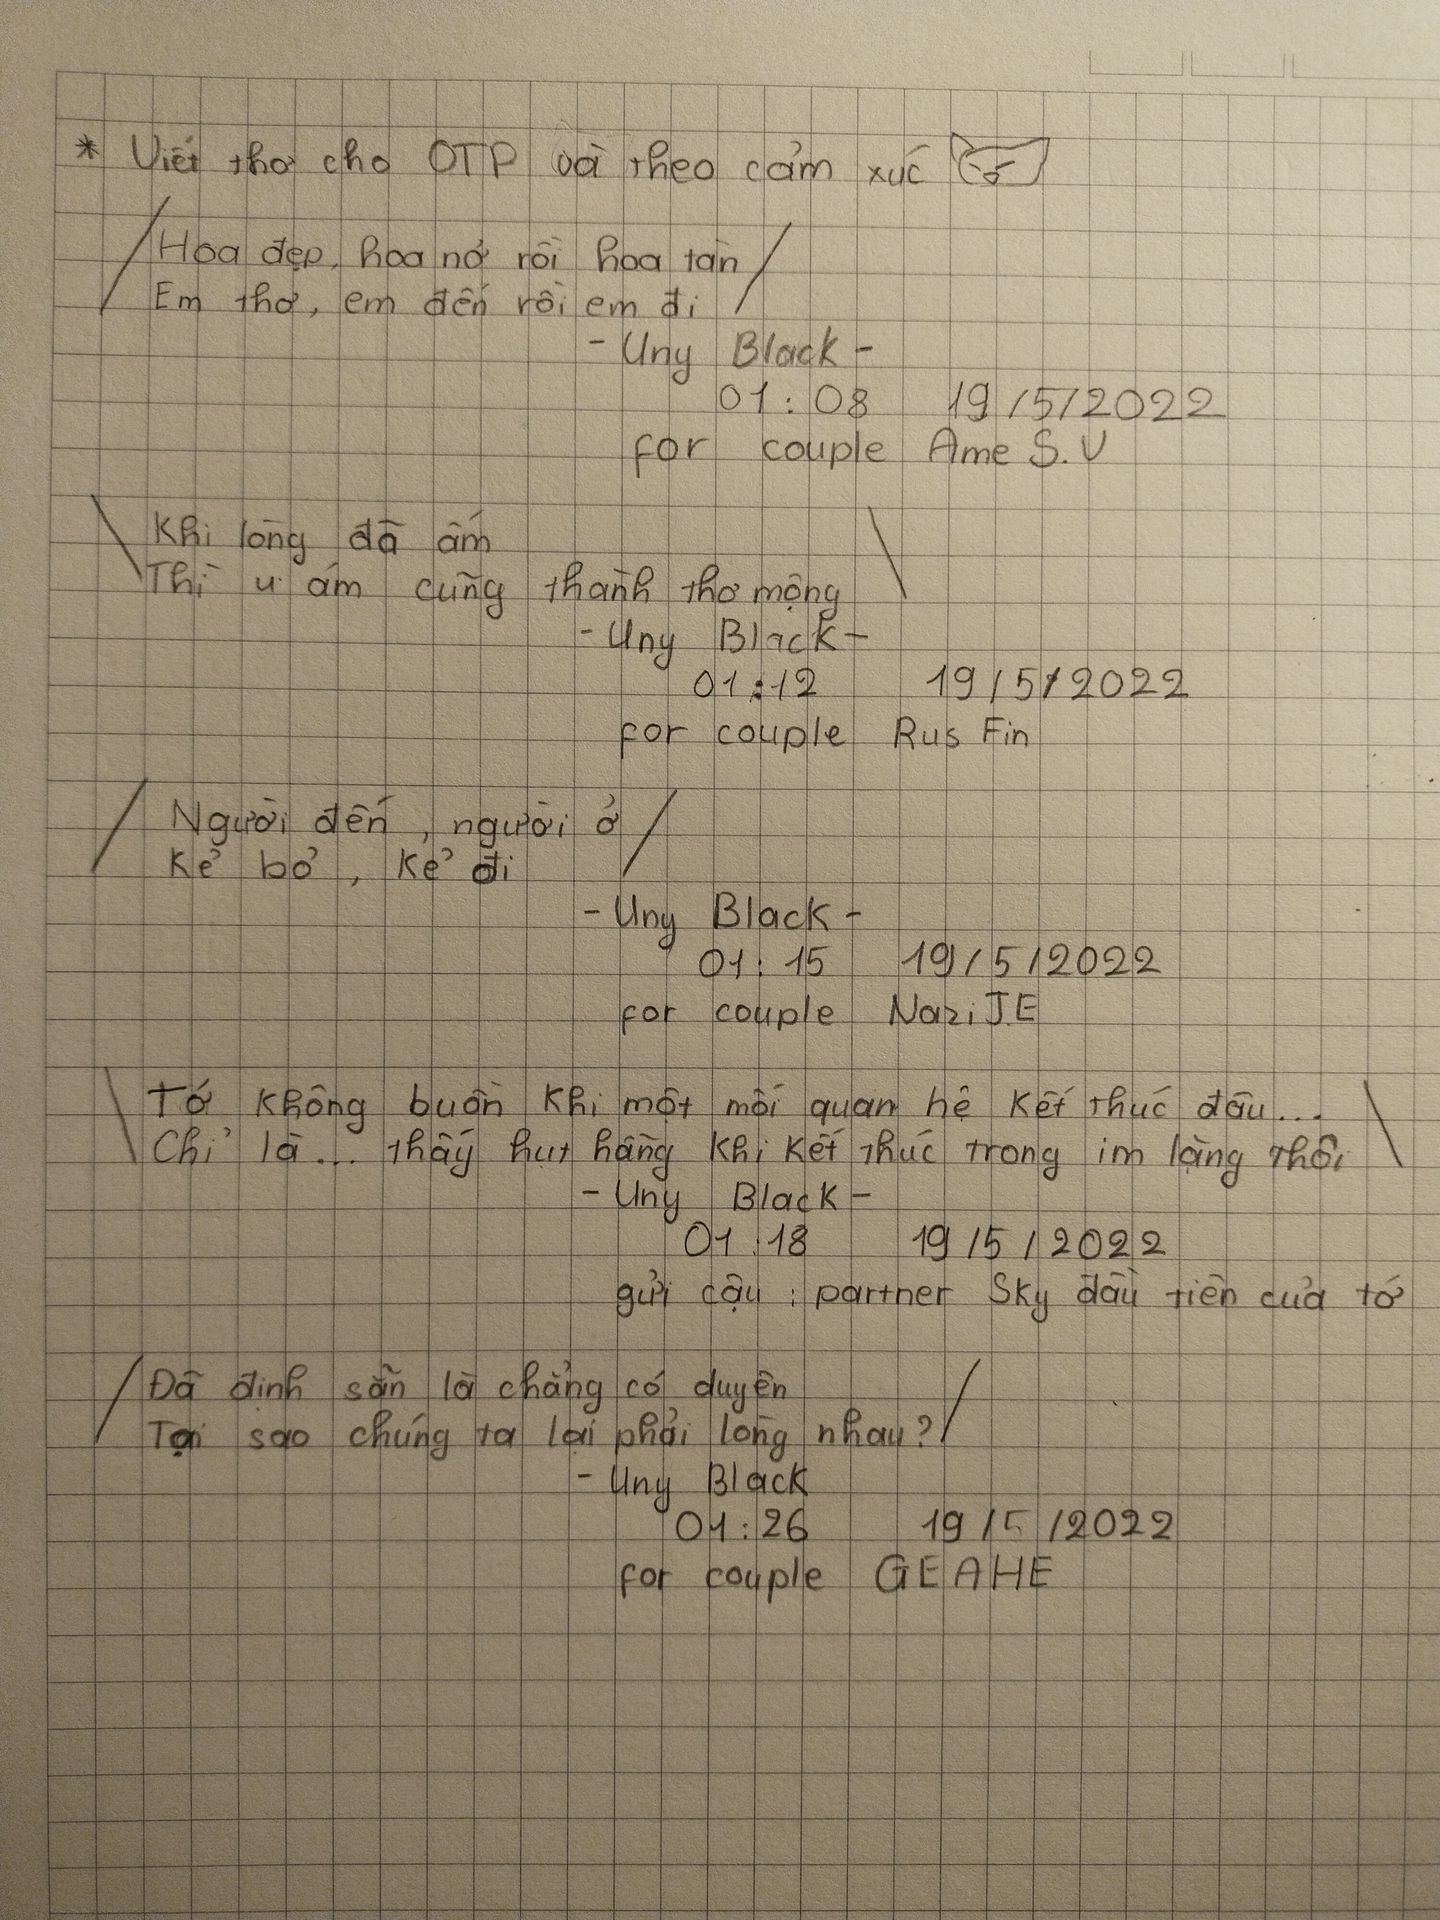 * Viết thơ cho OTP và theo cảm xúc
/Hoa đẹp, hoa nở rồi hoa tàn/
Em thơ, em đến rồi em đi
- Uny Black -
01:08 19/5/2022
for couple Ame S.V
\Khi lòng đã ấm\
Thì u ám cũng thành thơ mộng
- Uny Black -
01:12 19/5/2022
for couple Rus Fin
/Người đến, người ở/
Kẻ bỏ, kẻ đi
- Uny Black -
01:15 19/5/2022
for couple Nazi J.E
\Tớ không buồn khi một mối quan hệ kết thúc đâu...\
Chỉ là... thấy hụt hẫng khi kết thúc trong im lặng thôi
- Uny Black -
01:18 19/5/2022
gửi cậu: partner Sky đầu tiên của tớ
/Đã định sẵn là chẳng có duyên/
Tại sao chúng ta lại phải lòng nhau?
- Uny Black
01:26 19/5/2022
for couple GEAHE